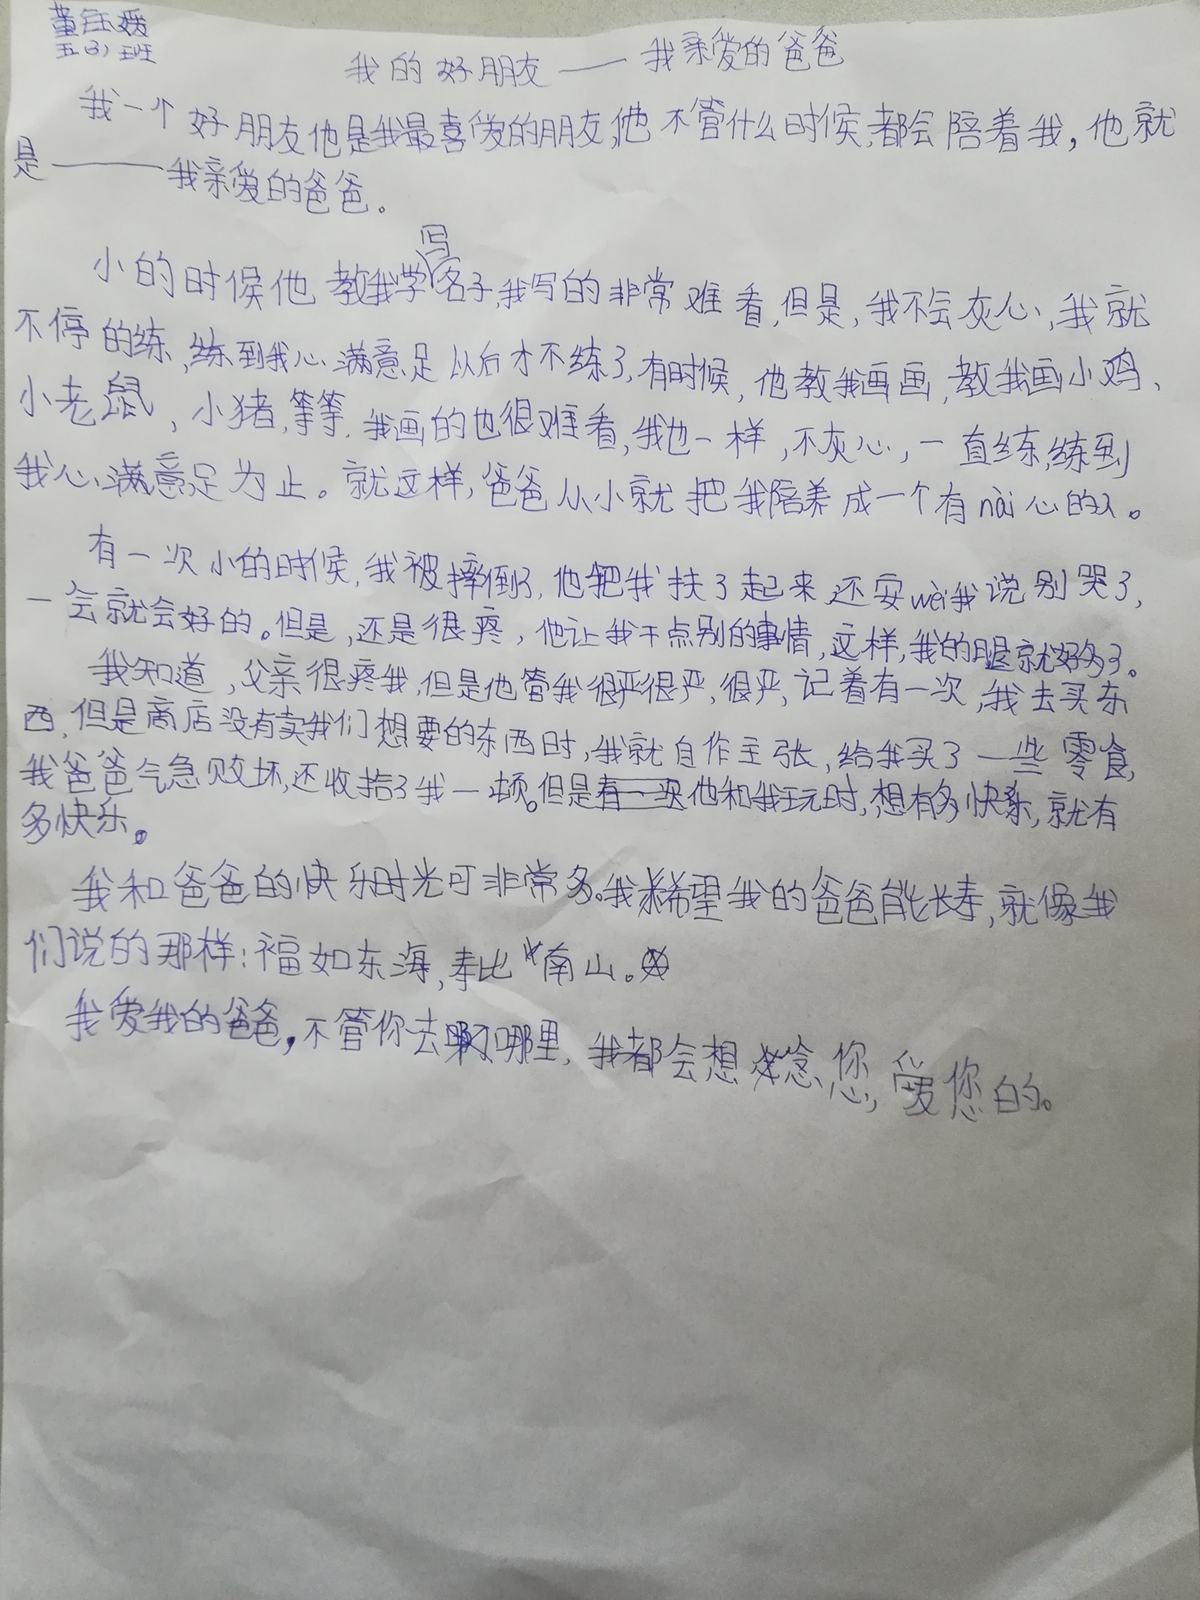 董钰媛
五(3)班
我的好朋友——我亲爱的爸爸
我一个好朋友他是我最喜爱的朋友,他不管什么时候,都会陪着我，他就
是——我亲爱的爸爸。
小的时候他教我学写名子,我写的非常难看,但是,我不会灰心,我就
不停的练,练到我心满意足从后才不练了,有时候,他教我画画,教我画小鸡、
小老鼠,小猪,等等,我画的也很难看,我也一样,不灰心,一直练,练到
我心满意足为止。就这样,爸爸从小就把我陪养成一个有nài心的人。
有一次小的时候,我被摔倒了,他把我扶了起来还安wèi我说别哭了,
一会就会好的。但是,还是很疼,他让我干点别的事情,这样,我的腿就好多了。
我知道,父亲很疼我,但是他管我很严很严,很严,记着有一次,我去买东
西,但是商店没有卖我们想要的东西时,我就自作主张,给我买了一些零食,
我爸爸气急败坏,还收拾了我一顿。但是他和我玩时,想有多快乐,就有
多快乐。
我和爸爸的快乐时光可非常多。我希望我的爸爸能长寿,就像我
们说的那样:福如东海,寿比南山。
我爱我的爸爸,不管你去哪里,我都会想念您,爱您的。